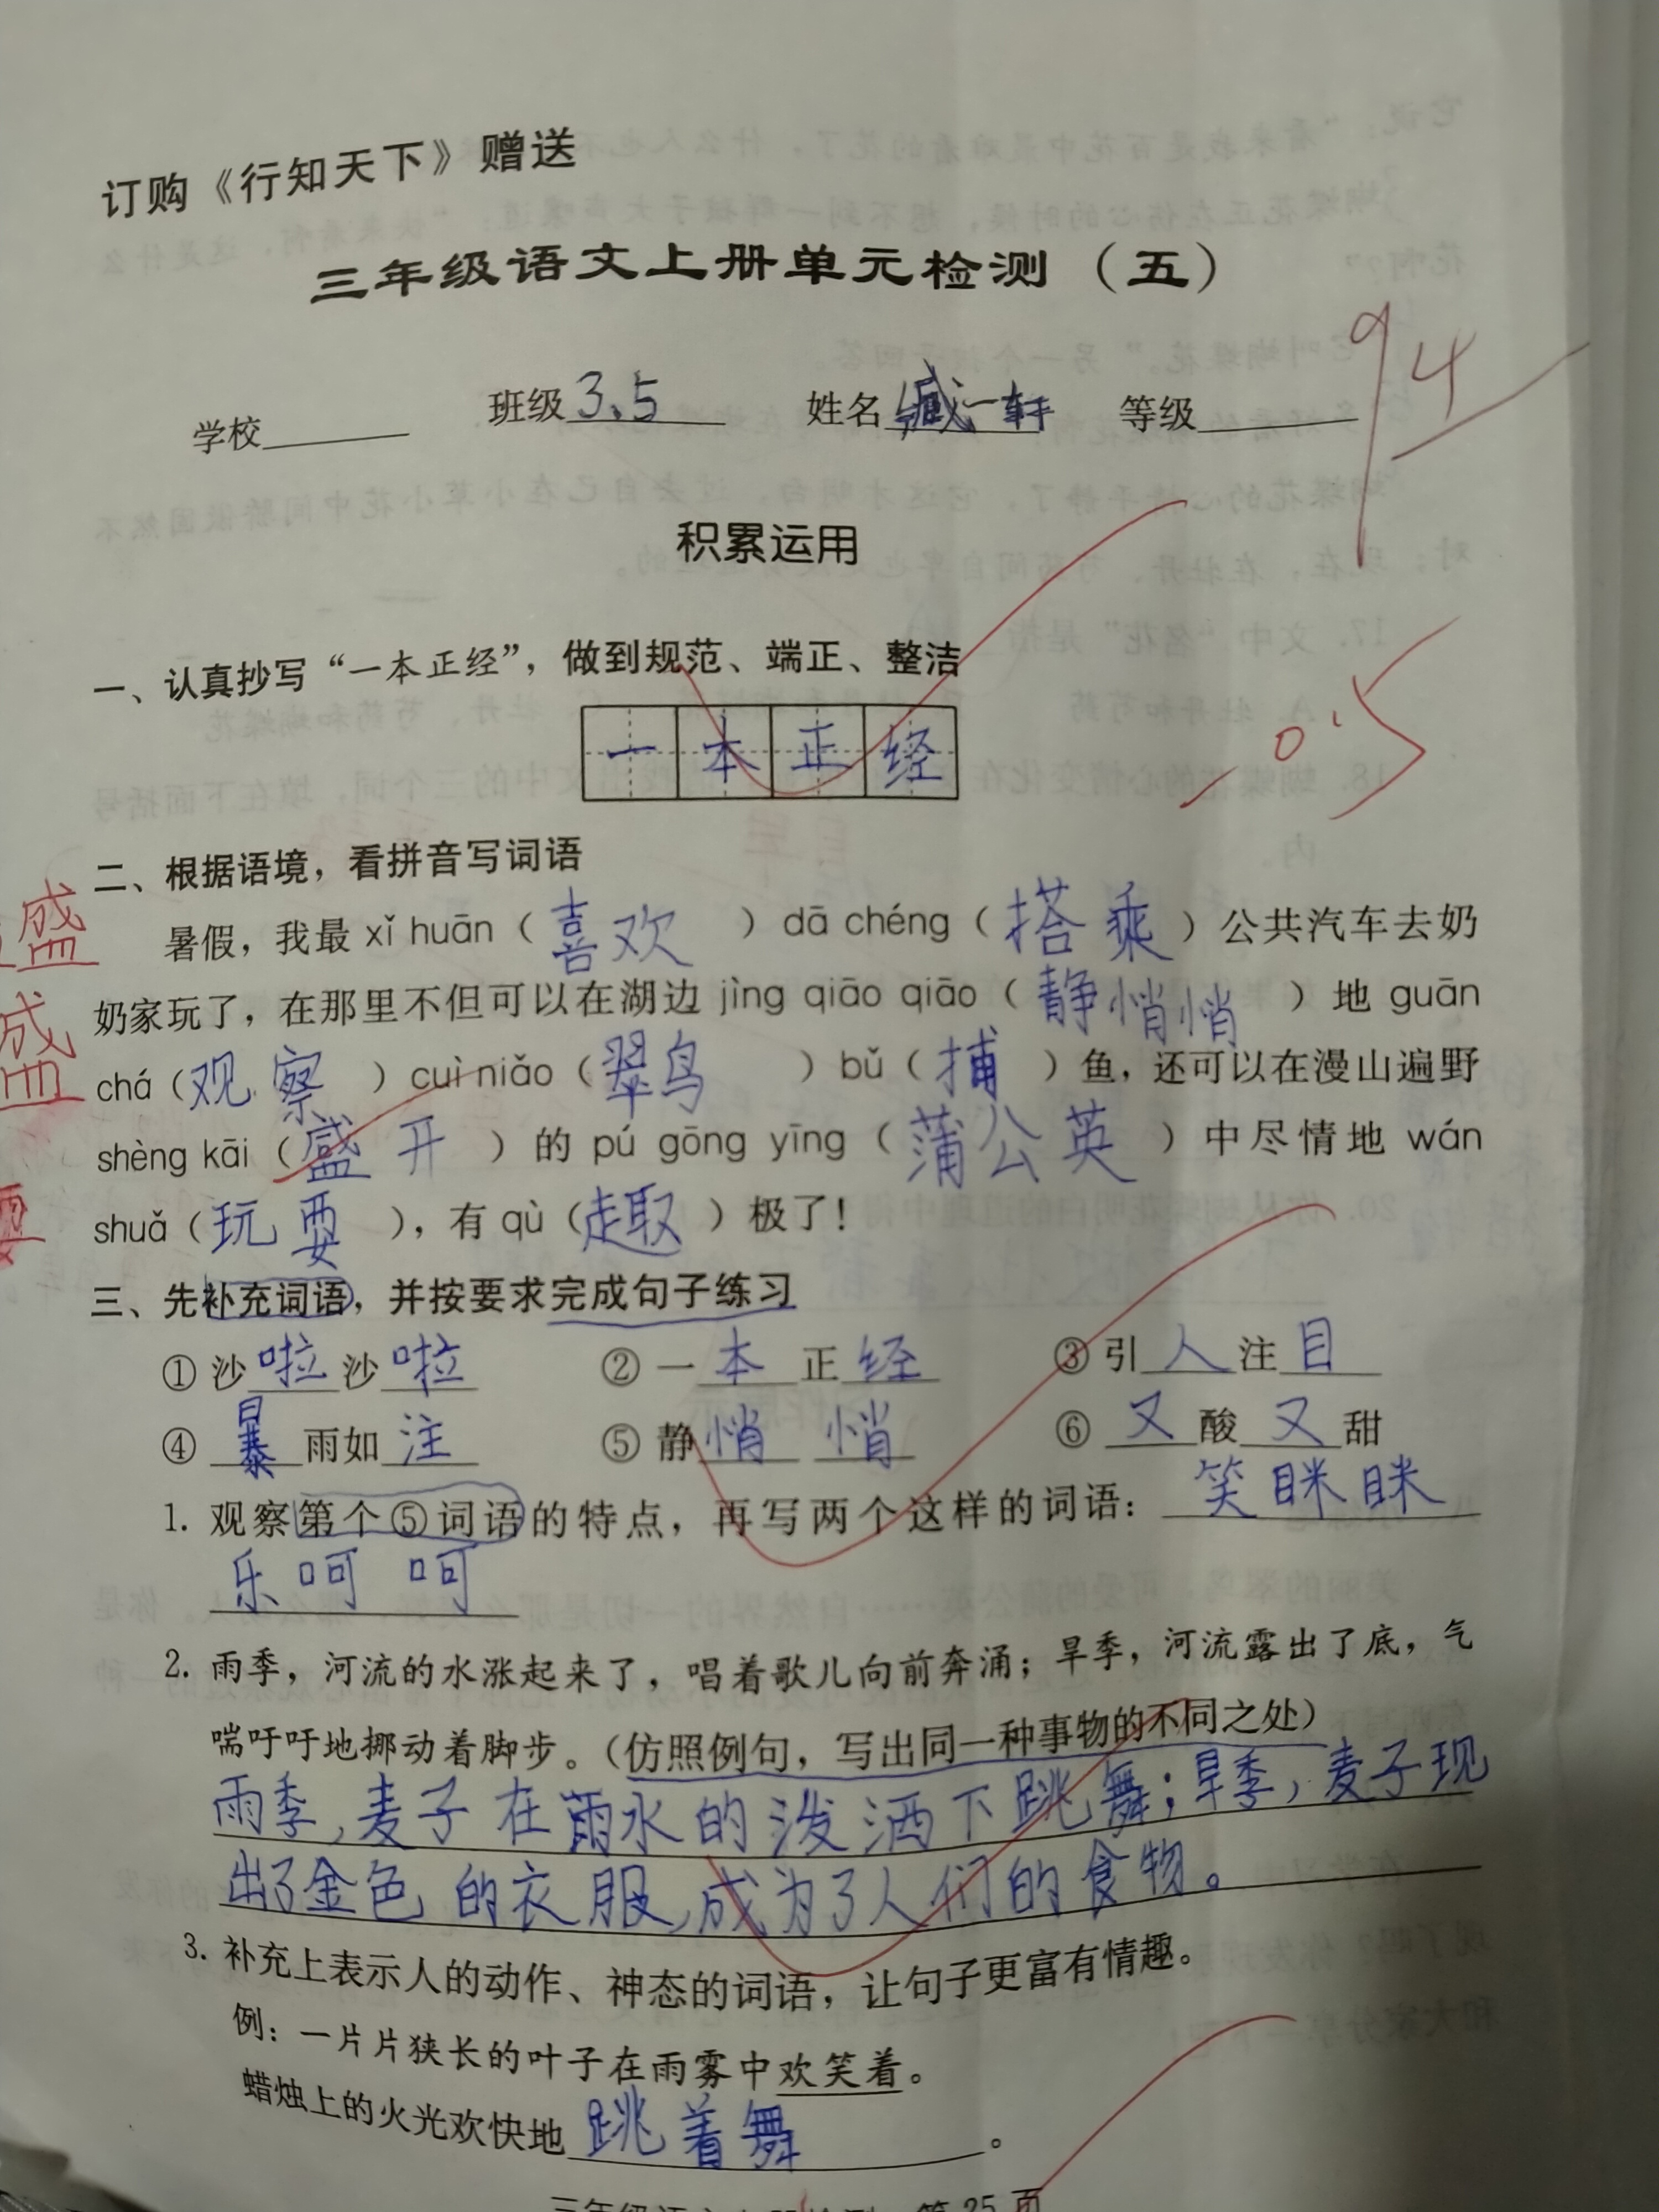 订购《行知天下》赠送
三年级语文上册单元检测（五）
94
学校 班级3.5 姓名臧一轩 等级
积累运用
一、认真抄写“一本正经”，做到规范、端正、整洁
一本正经
-0.5
二、根据语境，看拼音写词语
盛
暑假，我最 xǐ huān（喜欢）dā chéng（搭乘）公共汽车去奶
奶家玩了，在那里不但可以在湖边 jìng qiāo qiāo（静悄悄）地 guān
盛
chá（观察）cuì niǎo（翠鸟）bǔ（捕）鱼，还可以在漫山遍野
shèng kāi（盛开）的 pú gōng yīng（蒲公英）中尽情地 wán
shuǎ（玩耍），有 qù（趣）极了！
三、先补充词语，并按要求完成句子练习
①沙啦沙啦 ②一本正经 ③引人注目
④暴雨如注 ⑤静悄悄 ⑥又酸又甜
1. 观察第个⑤词语的特点，再写两个这样的词语：笑眯眯
乐呵呵
2. 雨季，河流的水涨起来了，唱着歌儿向前奔涌；旱季，河流露出了底，气
喘吁吁地挪动着脚步。（仿照例句，写出同一种事物的不同之处）
雨季，麦子在雨水的泼洒下跳舞；旱季，麦子现
出了金色的衣服，成为了人们的食物。
3. 补充上表示人的动作、神态的词语，让句子更富有情趣。
例：一片片狭长的叶子在雨雾中欢笑着。
蜡烛上的火光欢快地跳着舞。
第 25 页